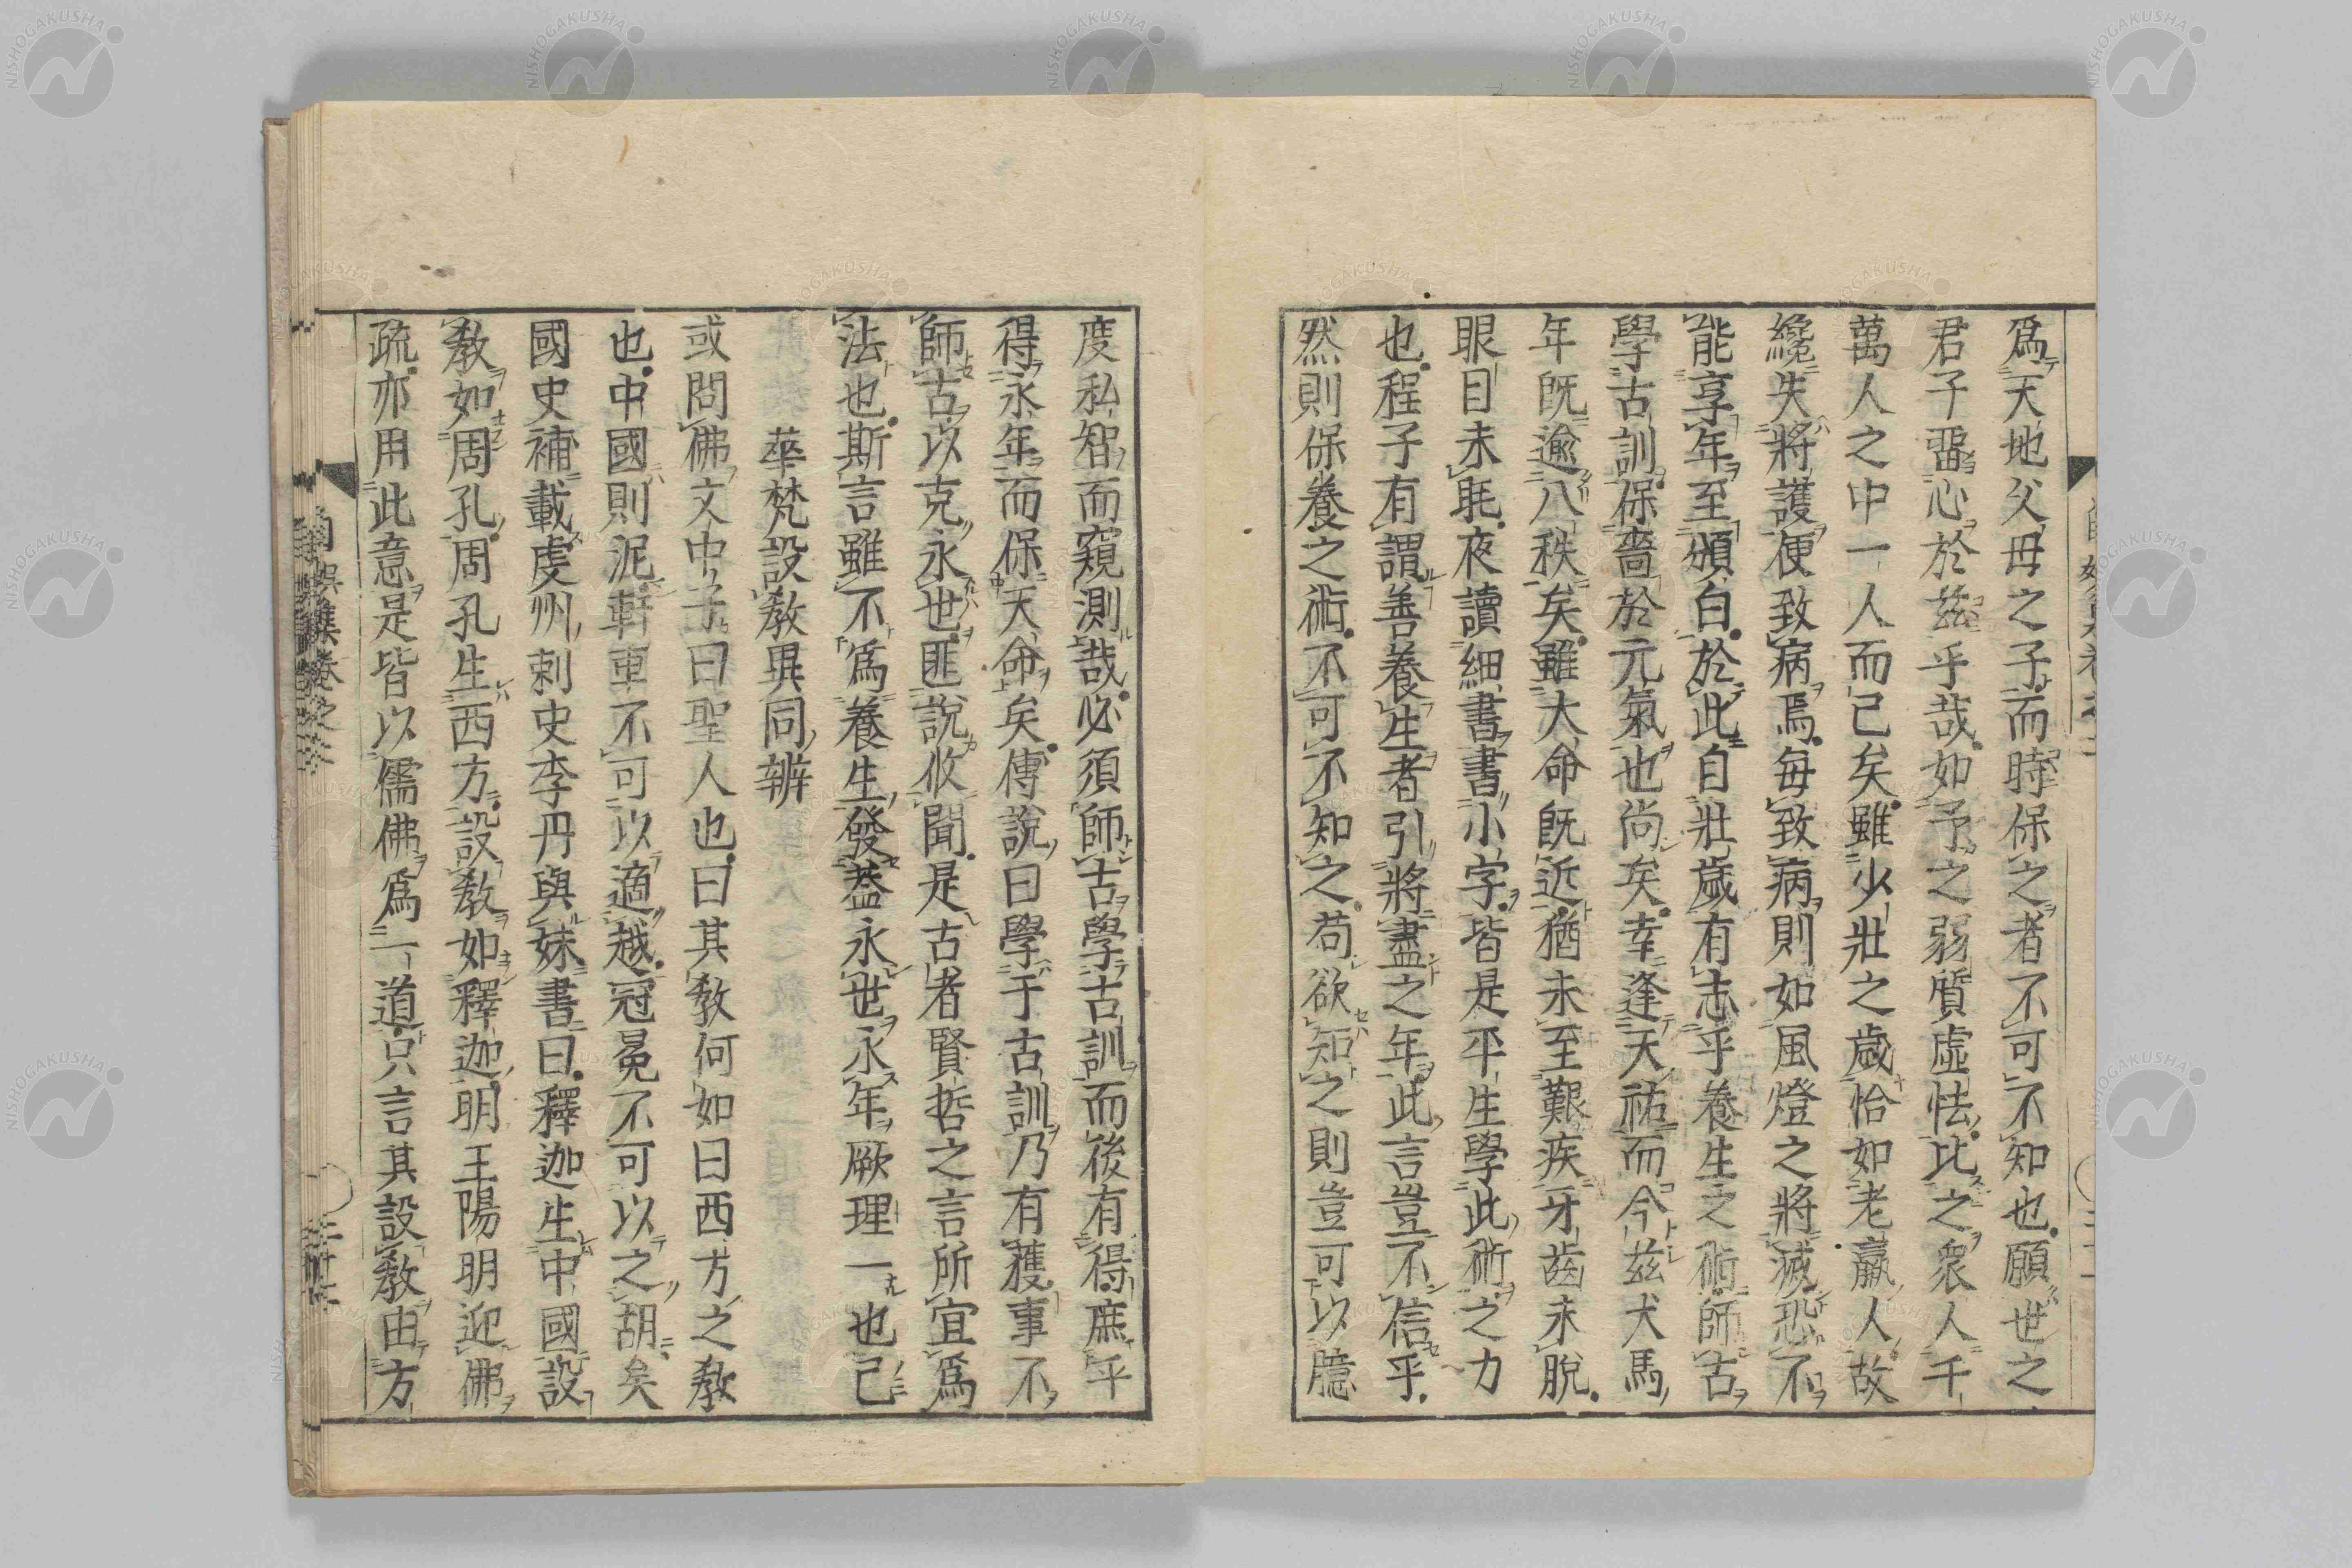 爲天地父母之子而時保之者不可不知也願世之
君子畱心於茲乎哉如予之弱質虛怯比之衆人千
萬人之中一人而已矣雖少壯之歲恰如老羸人故
纔失將護便致病焉每致病則如風燈之將滅恐不
能享年至頒白於此自壯歲有志乎養生之術師古
學古訓保嗇於元氣也尚矣幸逢天祐而今茲犬馬
年既逾八秩矣雖大命既近猶未至艱疾牙齒未脫
眼目未眊夜讀細書書小字皆是平生學此術之力
也程子有謂善養生者引將盡之年此言豈不信乎
然則保養之術不可不知之苟欲知之則豈可以臆
度私智而窺測哉必須師古學古訓而後有得庶乎
得永年而保天命矣傳說曰學于古訓乃有獲事不
師古以克永世匪說攸聞是古者賢哲之言所宜爲
法也斯言雖不爲養生發蓋永世永年厥理一也已
華梵設教異同辨
或問佛文中子曰聖人也曰其教何如曰西方之教
也中國則泥軒車不可以適越冠冕不可以之胡矣
國史補載虔州刺史李丹與妹書曰釋迦生中國設
教如周孔周孔生西方設教如釋迦明王陽明迎佛
疏亦用此意是皆以儒佛爲一道只言其設教由方
自娛集卷之六
NISHOGAKUSHA